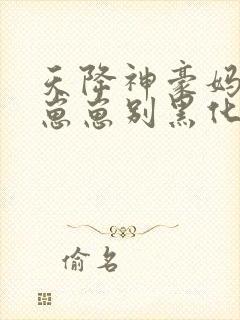 天降神豪妈
崽崽别黑化
偷名